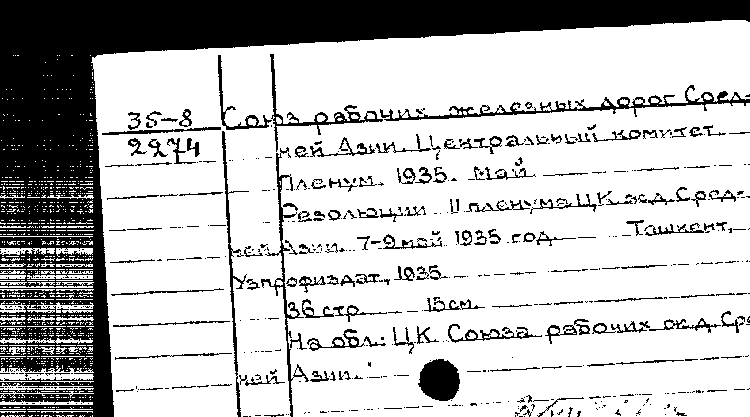 35-8 Союз рабочих железных дорог Сред-
2274 ней Азии. Центральный комитет.
Пленум. 1935. Май.
Резолюции II пленума ЦК ж.д. Сред-
ней Азии. 7-9 май 1935 год. Ташкент,
Узпрофиздат, 1935.
36 стр. 15 см.
На обл.: ЦК Союза рабочих ж.д. Сре
ней Азии.